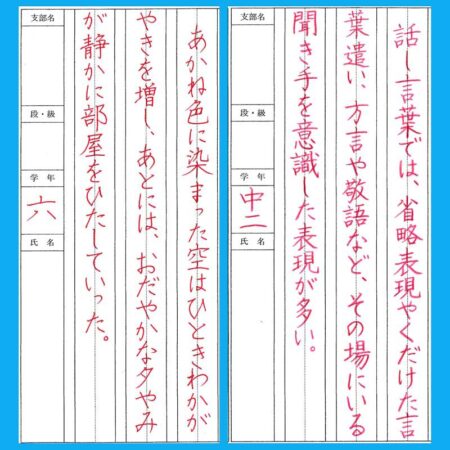 話し言葉では、省略表現やくだけた言
葉遣い、方言や敬語など、その場にいる
聞き手を意識した表現が多い。
支部名
段・級
学年
中二
氏名
あかね色に染まった空はひときわかが
やきを増し、あとには、おだやかな夕やみ
が静かに部屋をひたしていった。
支部名
段・級
学年
六
氏名